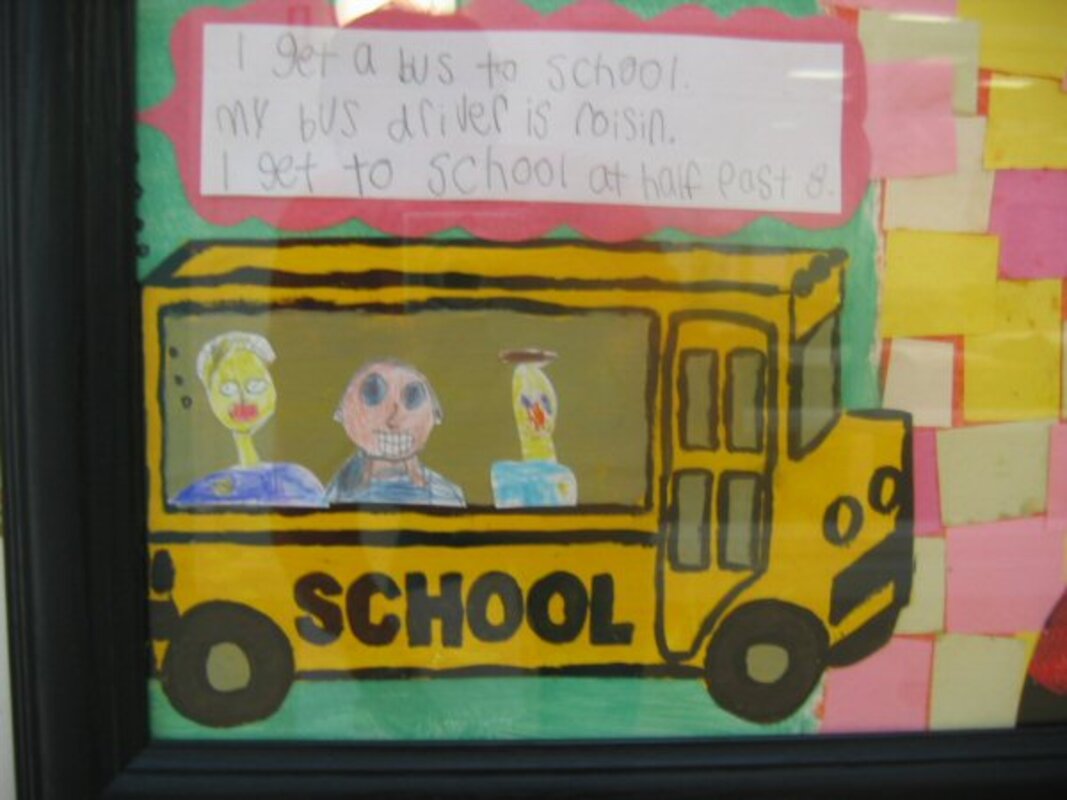 I get a bus to school.
my bus driver is roisin.
I get to school at half past 8.
SCHOOL